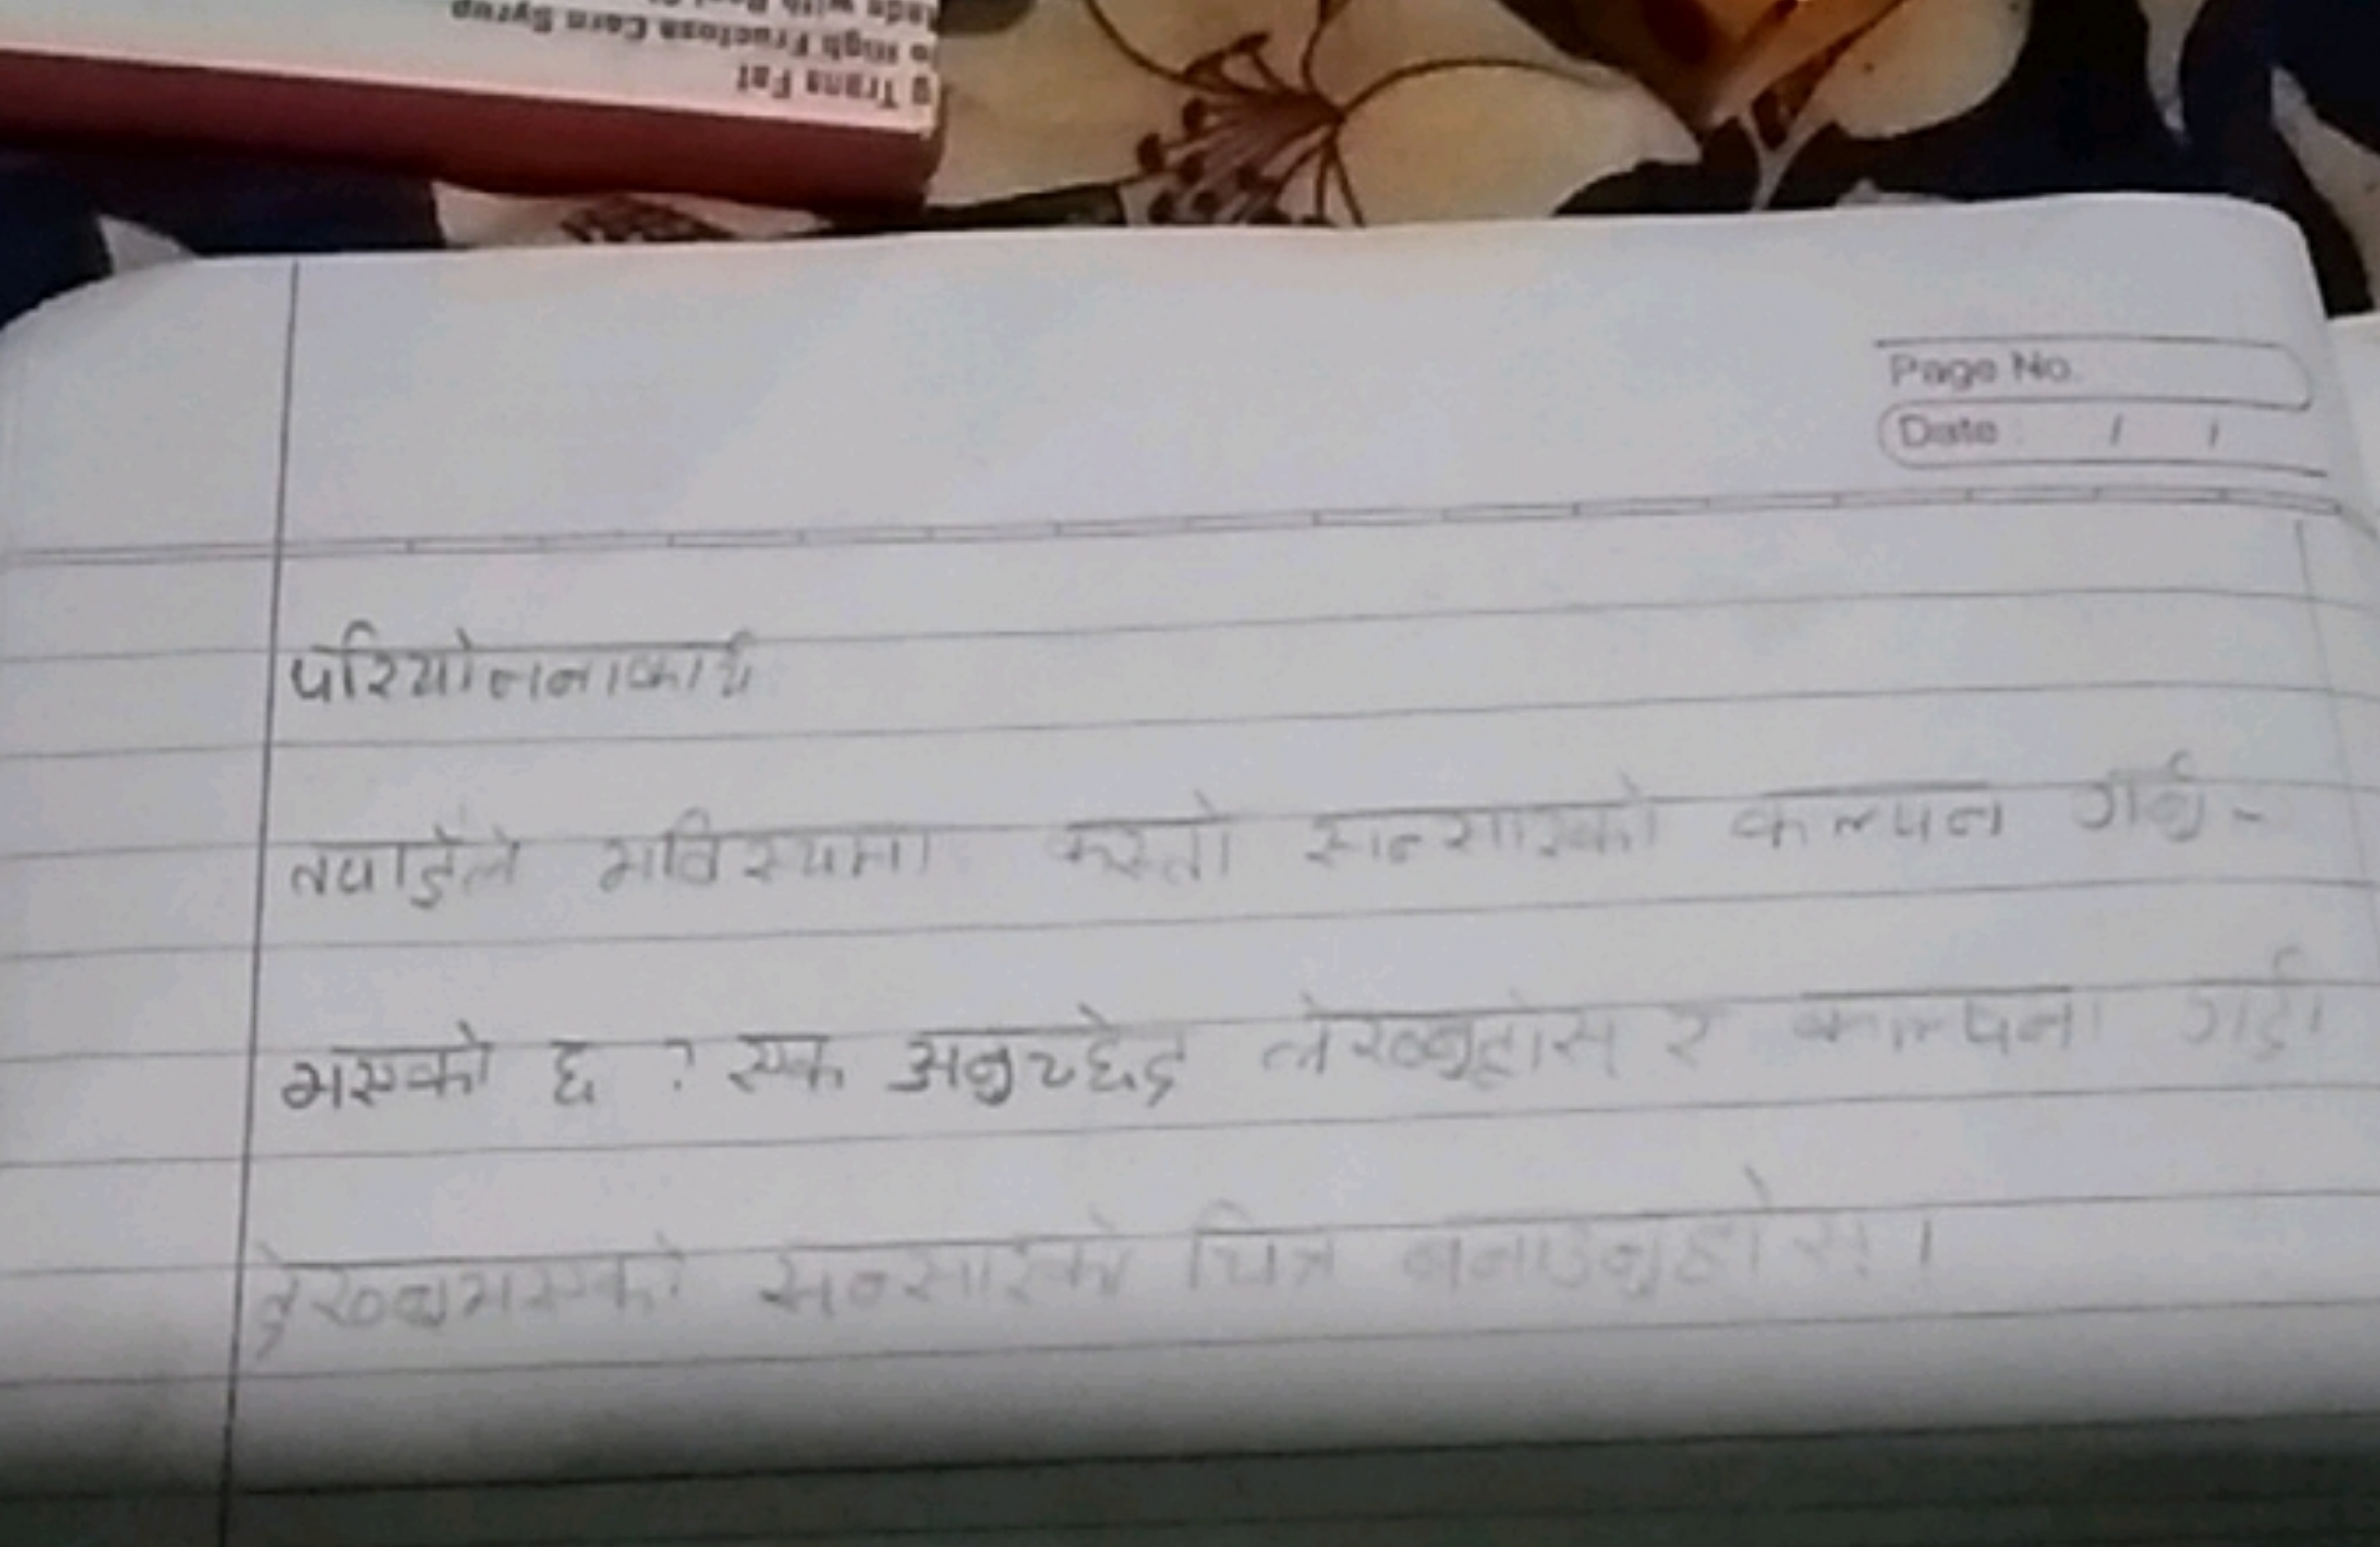 ade with Real
o High Fructose Corn Syrup
g Trans Fat
Page No.
Date : / /
परियोजनाकार्य
तपाईंले भविस्यमा कस्तो सन्सारको कल्पन गर्नु-
भएको छ ? एक अनुच्छेद लेख्नुहोस् र कल्पना गरी
लेख्नुभएको सन्सारको चित्र बनाउनुहोस् ।